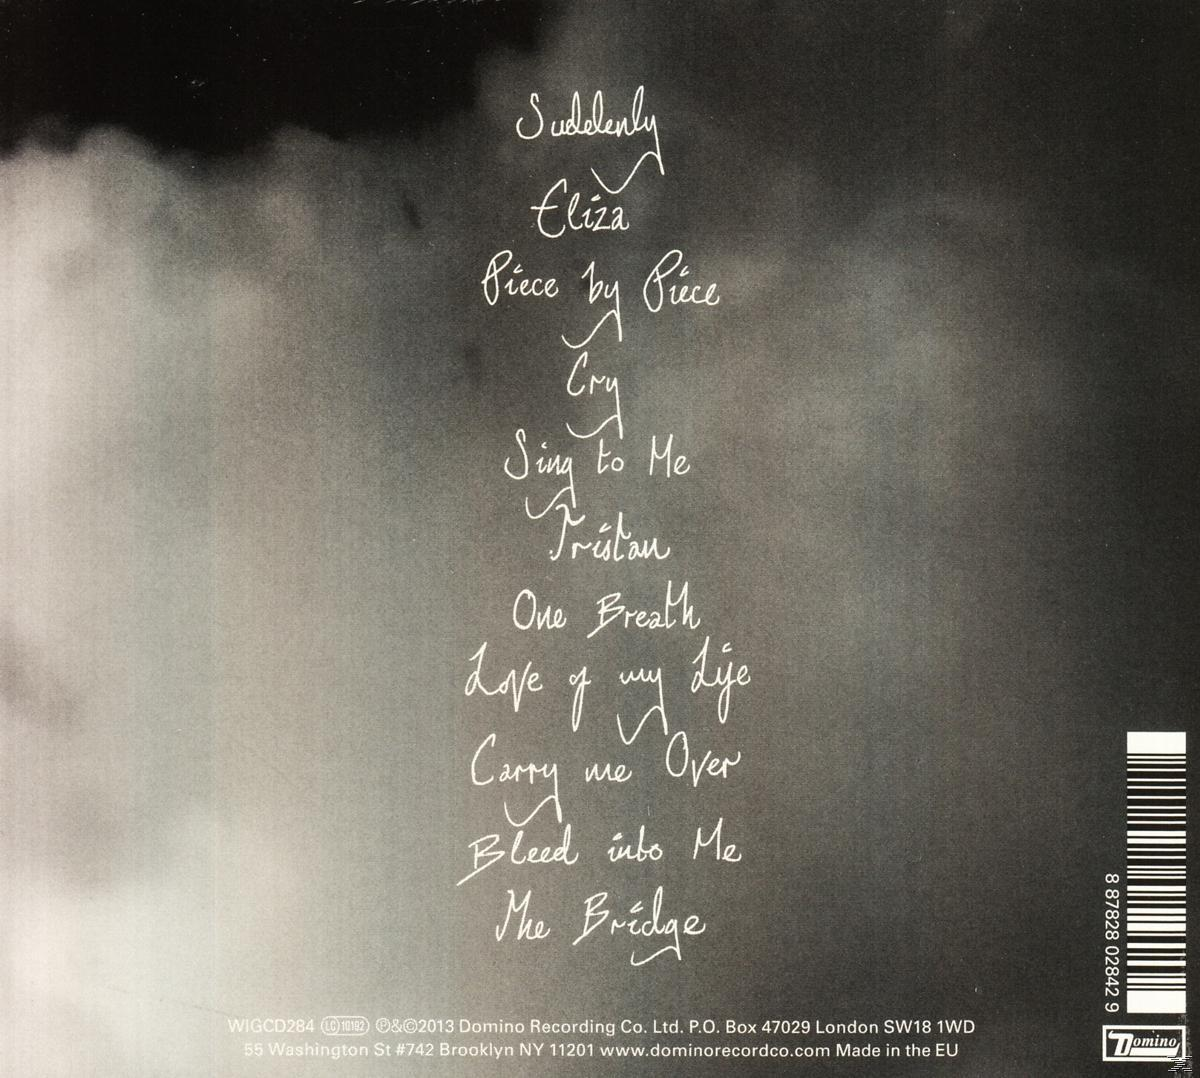 Suddenly
Eliza
Piece by Piece
Cry
Sing to Me
Tristan
One Breath
Love of my Life
Carry me Over
Bleed into Me
The Bridge
8 87828 02842 9
WIGCD284 LC 10192 ℗&©2013 Domino Recording Co. Ltd. P.O. Box 47029 London SW18 1WD
55 Washington St #742 Brooklyn NY 11201 www.dominorecordco.com Made in the EU
Domino